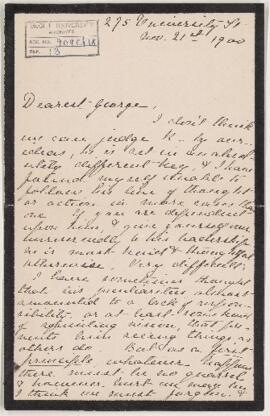 McGILL UNIVERSITY
ARCHIVES
ACC. NO.
REF.
275 University St.
Nov. 21st 1900
Dearest George,
I don't think
we can judge K— by our-
selves, he is set in an absol-
utely different key, & I have
found myself unable to
follow his line of thought
or action in more cases than
one. If you are dependent
upon him, & give yourself
unreservedly to his leadership
he is most kind & thoughtful
otherwise, very difficult.
I have sometimes thought
that his peculiarities almost
amounted to a lack of respon-
sibility, or at least some kind
of refracting vision, that pre-
vents him seeing things as
others do. But as a first
principle whatever happens
there must be no quarrel
& however hurt we may be,
I think we must forgive &